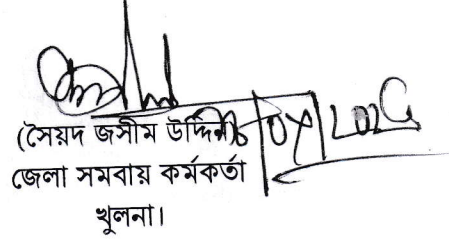 (সৈয়দ জসীম উদ্দিন)
জেলা সমবায় কর্মকর্তা
খুলনা।